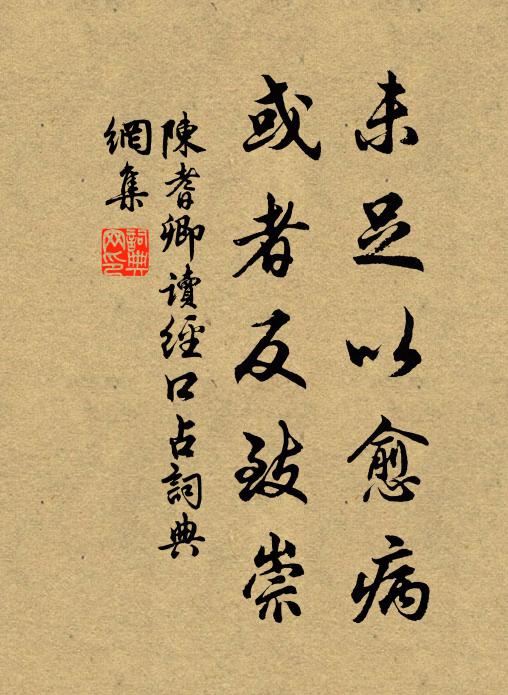 未足以愈病
或者反致祟
陳耆卿讀經口占詞典
網集
詞典網印